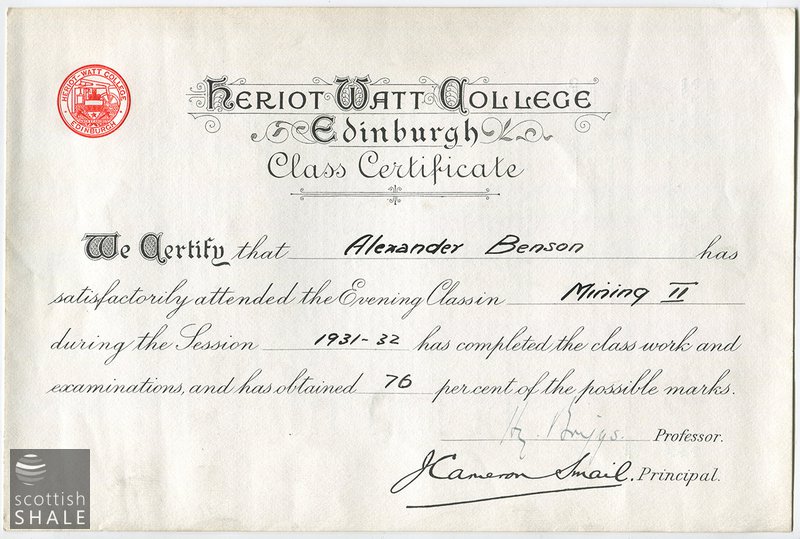 HERIOT-WATT COLLEGE
EDINBURGH
HERIOT WATT COLLEGE
Edinburgh
Class Certificate
We Certify that Alexander Benson has
satisfactorily attended the Evening Class in Mining II
during the Session 1931-32 has completed the class work and
examinations, and has obtained 76 per cent of the possible marks.
Hy. Briggs. Professor.
J Cameron Smail. Principal.
scottish
SHALE